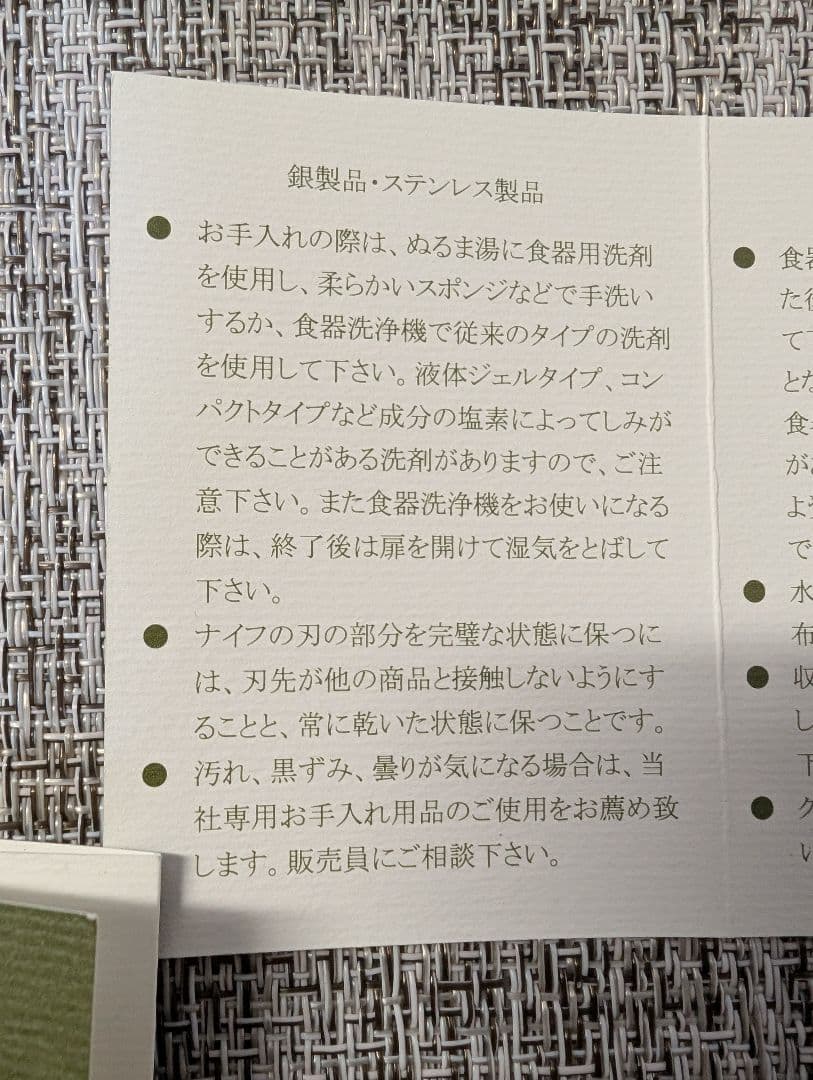 銀製品・ステンレス製品
● お手入れの際は、ぬるま湯に食器用洗剤
を使用し、柔らかいスポンジなどで手洗い
するか、食器洗浄機で従来のタイプの洗剤
を使用して下さい。液体ジェルタイプ、コン
パクトタイプなど成分の塩素によってしみが
できることがある洗剤がありますので、ご注
意下さい。また食器洗浄機をお使いになる
際は、終了後は扉を開けて湿気をとばして
下さい。
● ナイフの刃の部分を完璧な状態に保つに
は、刃先が他の商品と接触しないようにす
ることと、常に乾いた状態に保つことです。
● 汚れ、黒ずみ、曇りが気になる場合は、当
社専用お手入れ用品のご使用をお薦め致
します。販売員にご相談下さい。
● 食
た
て
と
食
が
よう
で
● 水
布
● 収
し
下
● ク
い